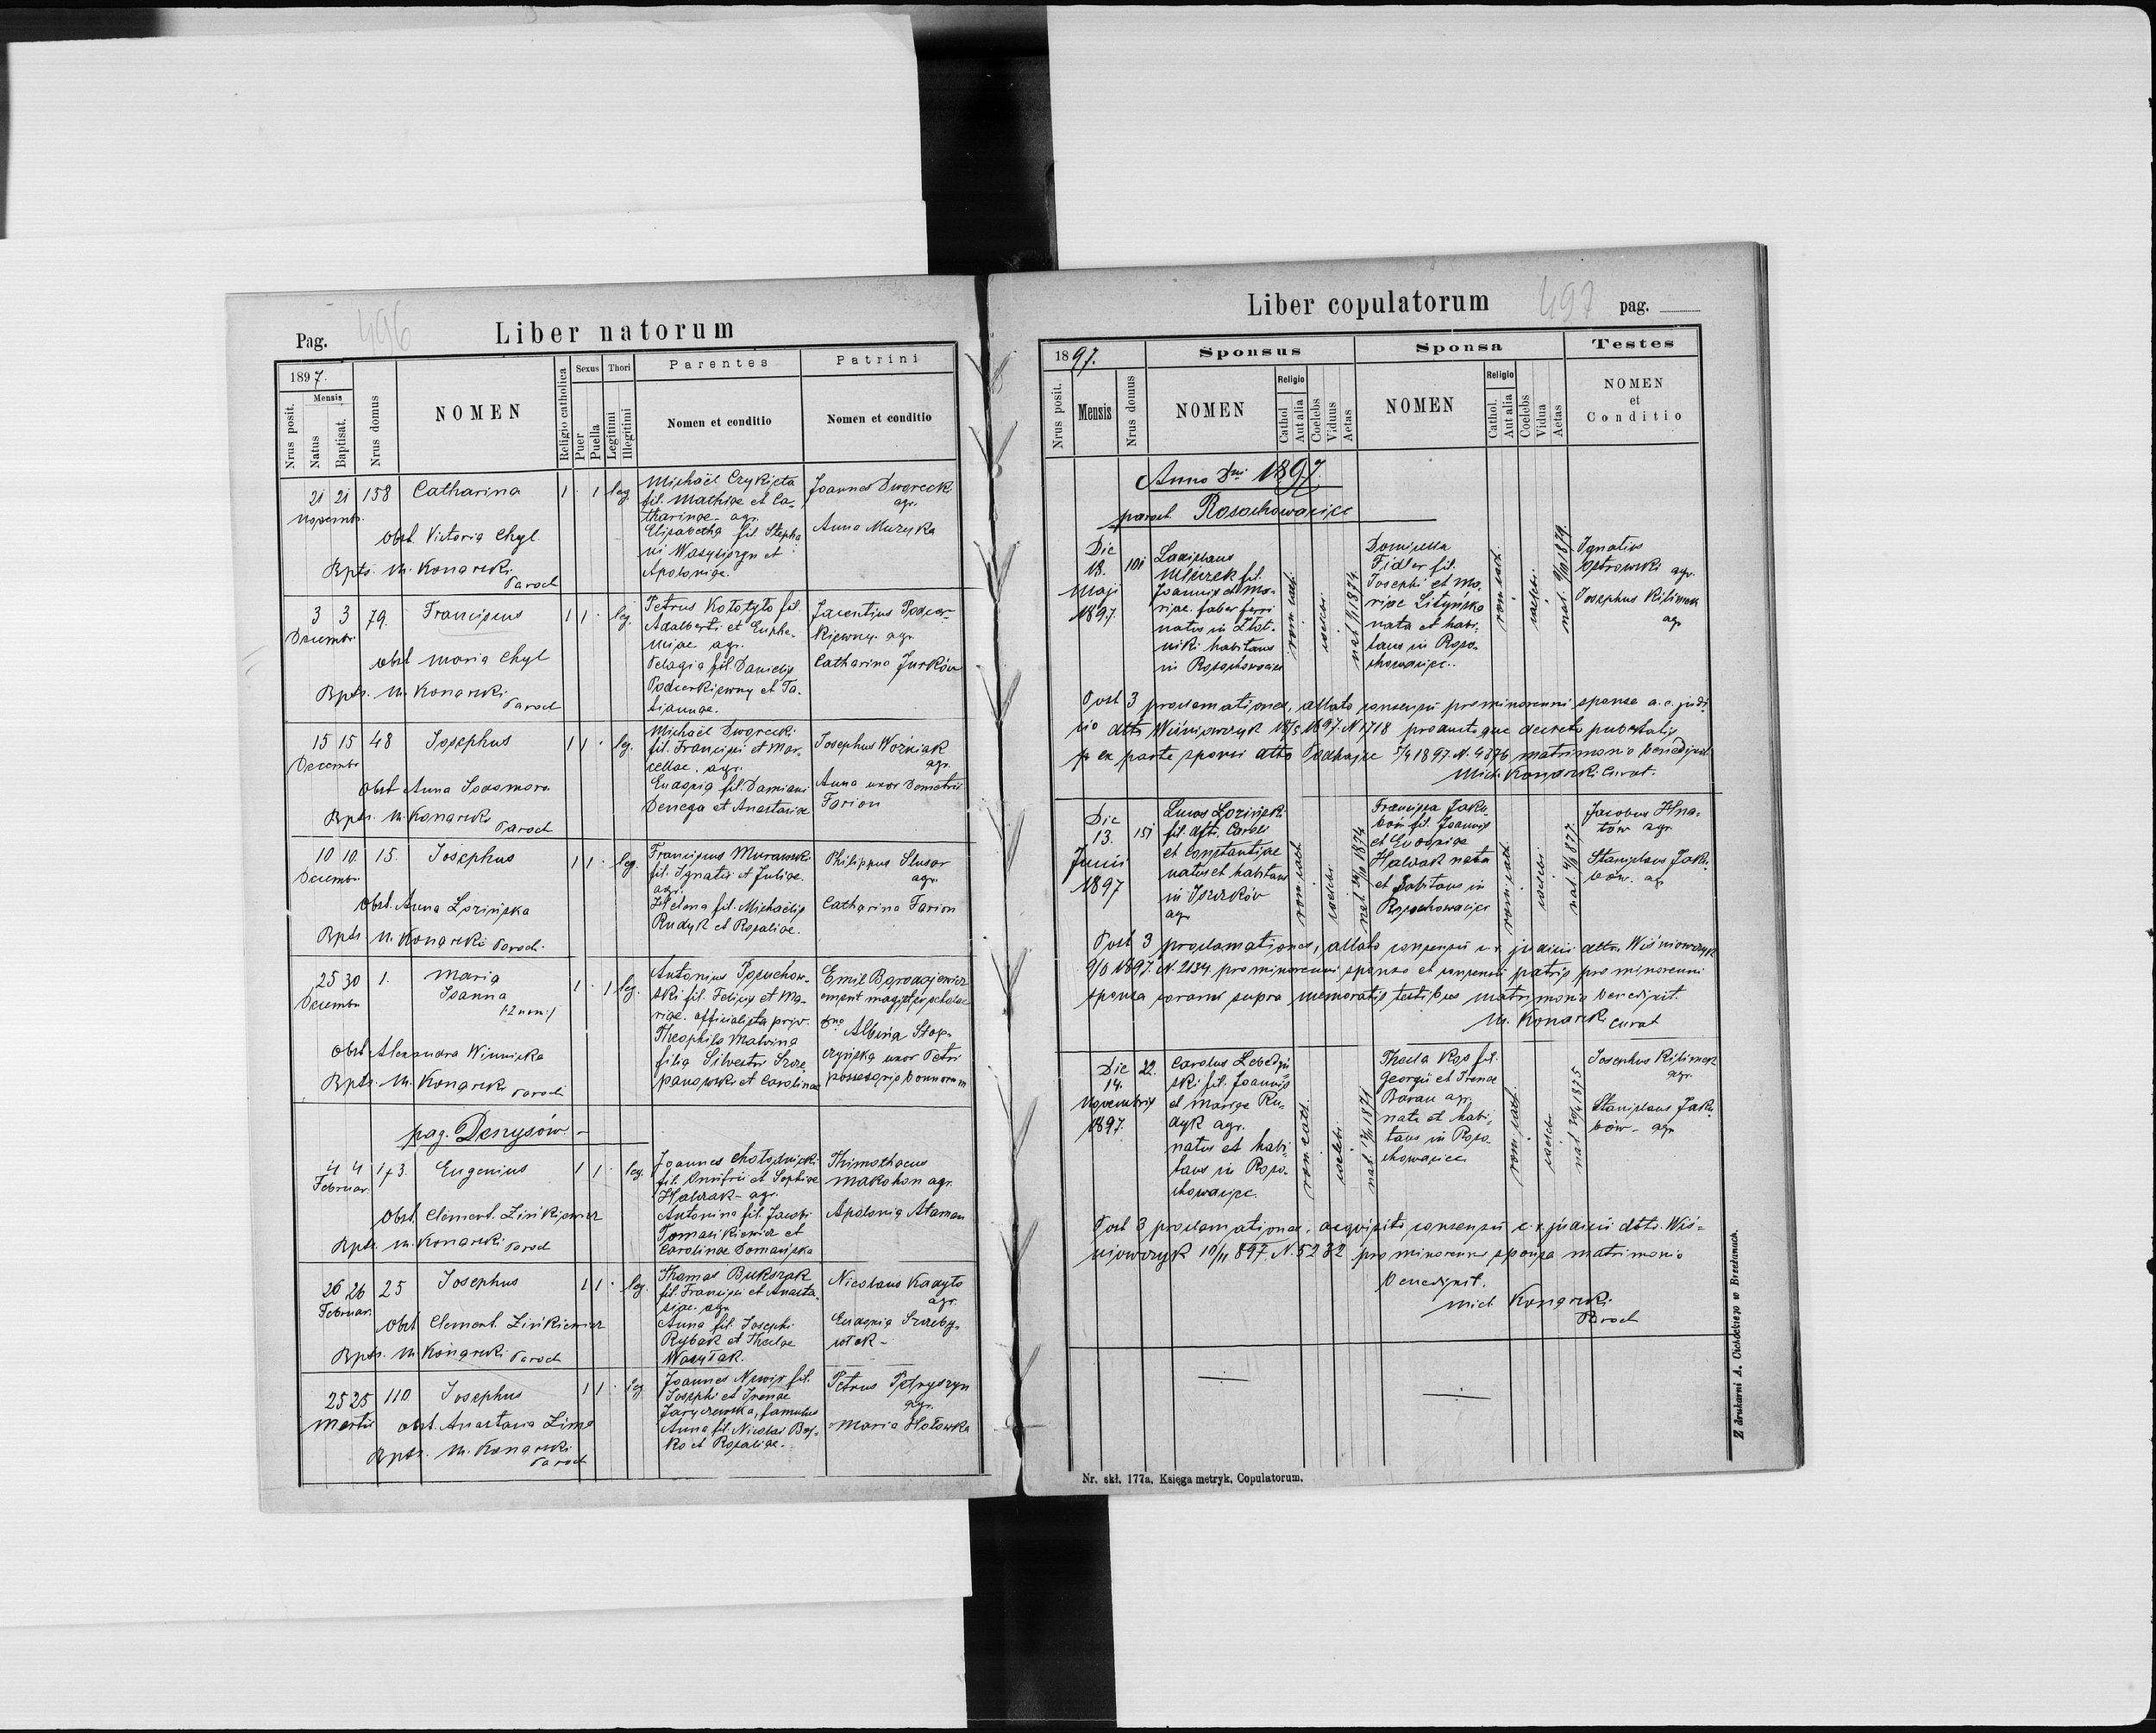 Pag. 496
Liber natorum
1897.
Nrus posit.
Mensis
Natus
Baptisat.
Nrus domus
NOMEN
Religio catholica
Sexus
Puer
Puella
Thori
Legitimi
Illegitimi
Parentes
Nomen et conditio
Patrini
Nomen et conditio
21 21 158 Catharina 1 1 leg.
Novembr.
Obst. Victoria Chyl
Bpts. M. Konarski
Paroch
Michaël Czykieta
fil. Mathiae et Ca-
tharinae - agr.
Elisabetha fil. Stepha
ni Wasyliszyn et
Apoloniae.
Joannes Dworecki
agr.
Anna Muzyka
3 3 79. Franciscus 1 1 leg.
Decembr.
obst Maria Chyl
Bpts. M. Konarski
Paroch
Petrus Kołotyło fil.
Adalberti et Euphe-
miae agr.
Pelagia fil. Danielis
Podcerkiewny et Ta-
tiannae.
Jacentius Podcer-
kiewny. agr.
Catharina Jurków
15 15 48 Josephus 1 1 leg.
Decembr
Obst Anna
Bpts. M. Konarski
Paroch
Michaël Dworecki
fil. Francisci et Mar-
cellae. agr.
Eudoxia fil. Damiani
Denega et Anastasiae
Josephus Woźniak
agr.
Anna uxor Demetrii
Farion
10 10. 15. Josephus 1 1 leg.
Decembr.
Obst. Anna Łozińska
Bpts. M. Konarski Paroch.
Franciscus Murawski
fil. Ignatii et Juliae.
agr.
Helena fil. Michaëlis
Rudyk et Rosaliae.
Philippus Slusar
agr.
Catharina Farion
25 30 1. Maria
Joanna
/:2 nom:/
1 1 leg.
Decembr
Obst Alexandra Winnicka
Bpts. M. Konarski Paroch
Antonius
ski fil. Felicis et Ma-
riae. officialista priv.
Theophila Malvina
filia Silvestri Szcze
panowski et Carolinae
Emil
emerit magister scholae
Albina Stop-
czyńska uxor Petri
possessoris bonorum
pag. Denysów. -
4 4 143. Eugenius 1 1 leg.
Februar.
Obst. Clement. Zinkiewicz
Bpts. M. Konarski Paroch
Joannes Chołodnicki
fil. Onufrii et Sophiae
Halczak - agr.
Antonina fil. Jacobi
Tomasikiewicz et
Carolinae Domańska
Thimothaeus
Makohon agr.
Apolonia Ataman
26 26 25 Josephus 1 1 leg.
Februar.
Obst Clement. Zinkiewicz
Bpts. M. Konarski Paroch
Thomas Bukszak
fil. Francisci et Anasta-
siae. agr.
Anna fil. Josephi
Rybak et Theclae
Nicolaus Kadyło
agr.
Eudoxia
25 25 110 Josephus 1 1 leg
Martii
obst. Anastasia Zima
Bpts. M. Konarski
Paroch
Joannes fil.
Josephi et Irenae
Jaryczewska, famulus
Anna fil. Nicolai
ko et Rosaliae.
Petrus Petryszyn
agr.
Maria Hołowka
Liber copulatorum
497 pag.
1897.
Nrus posit.
Mensis
Nrus domus
Sponsus
NOMEN
Religio
Cathol
Aut alia
Coelebs
Viduus
Aetas
Sponsa
NOMEN
Religio
Cathol.
Aut alia
Coelebs
Vidua
Aetas
Testes
NOMEN
et
Conditio
Anno Dni 1897.
paroch. Rosochowaciec
Die
18.
Maji
1897.
101
Ladislaus
fil.
Joannis et Ma-
riae. faber ferri
natus in Złot-
niki habitans
in Rosochowaciec
rom cath.
coelebs
Domicella
Fidler fil.
Josephi et Ma-
riae Lityńska
nata et habi-
tans in Roso-
chowaciec.
rom cath.
coelebs
Ignatius
Ostrowski agr.
Josephus Kilimek
agr
Post 3 proclamationes, allato consensu pro minorenni sponsa a. c. judi-
cio dtto Wiśniowczyk 18/5 1897. N 1718 praevioque decreto
ex parte sponsi dtto Podhajce 5/4 1897. N. 4876 matrimonio benedixit
Mich. Konarski Curat.
Die
13.
Junii
1897
151
Lucas Łoziński
fil. dfti. Caroli
et Constantiae
natus et habitans
in Iszczków
agr
rom. cath
coelebs
Francisca Jaku-
bów fil. Joannis
et Eudoxiae
Halczak nata
et habitans in
Rosochowaciec
rom. cath.
coelebs
Jacobus Hna-
tów agr.
Stanislaus Jaku-
bów. agr
Post 3 proclamationes, allato consensu c. r. judicii dtto. Wiśniowczyk
9/6 1897. N. 2134 pro minorenni sponso et consensu patris pro minorenni
sponsa coram supra memoratis testibus matrimonio benedixit.
M. Konarski Curat
Die
14.
Novembris
1897.
22.
Carolus Lebedyń-
ski fil. Joannis
et Mariae Ru-
dyk agr.
natus et habi-
tans in Roso-
chowaciec.
rom cath.
coelebs.
Thecla Kos fil.
Georgii et Irenae
Baran agr.
nata et habi-
tans in Roso
chowaciec
rom. cath.
coelebs
Josephus Kilimek
agr.
Stanislaus Jaku-
bów - agr
Post 3 proclamationes. acquisito consensu c. r. judicii dtto. Wiś-
niowczyk 10/11 897. N. 5232 pro minorenni sponsa matrimonio
benedixit.
Mich Konarski
Paroch
Nr. skł. 177a. Księga metryk, Copulatorum.
Z drukarni A. Cichockiego w Brzeżanach.